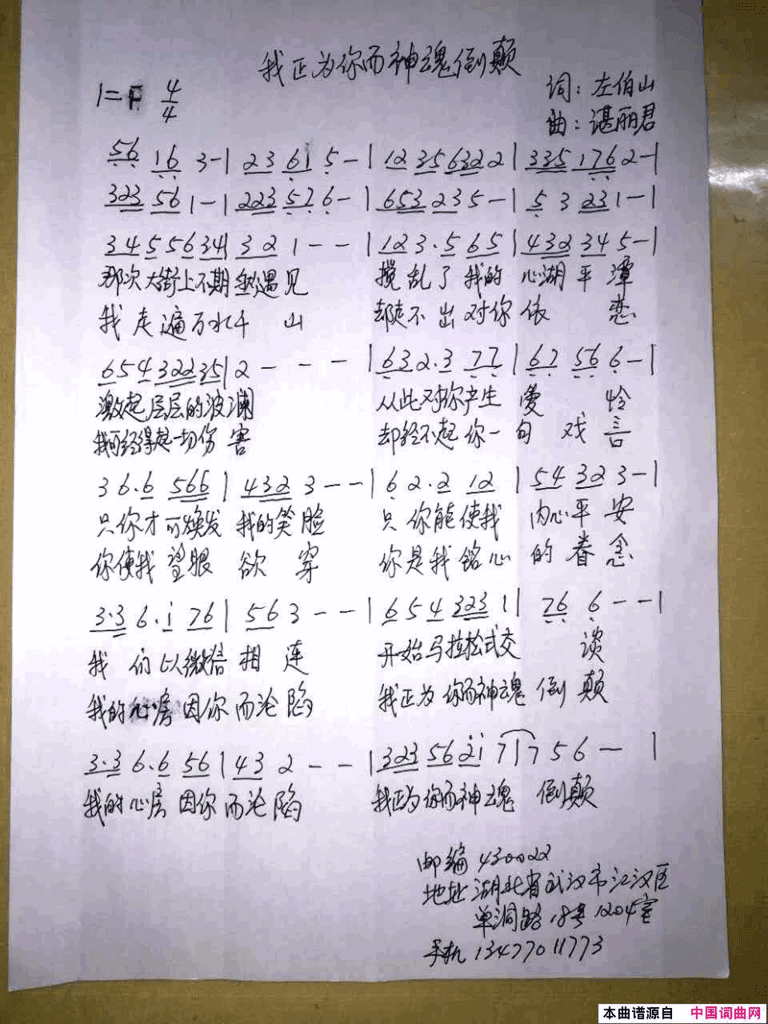 我正为你而神魂倒颠
1=F 4/4
词：左伯山
曲：谌丽君
56 16 3-| 23 61 5-| 12 356322| 335 1762-|
323 561-| 223 576-| 653 235-| 5 3 231-|
34556 34| 3 2 1--| 123·5 65| 432 345-|
那次大街上不期遇见 搅乱了我的 心湖平潭
我走遍万水千山 却走不出对你依恋
65432235|2--- |632·3 77| 67 56 6-|
激起层层的波澜 从此对你产生爱怜
我可经得起一切伤害 却经不起你一句戏言
36·6 566| 432 3--| 62·2 12| 54 32 3-|
只你才可焕发我的笑脸 只你能使我内心平安
你使我望眼欲穿 你是我铭心的眷念
3·3 6·i 76| 563--| 654 323 1| 76 6--|
我们以微信相连 开始马拉松式交谈
我的心房因你而沦陷 我正为你而神魂倒颠
3·3 6·6 56| 43 2--| 323 56 2i 7|7 5 6- |
我的心房因你而沦陷 我正为你而神魂倒颠
邮编 430022
地址 湖北省武汉市江汉区
单洞路18号1204室
手机 13477011773
本曲谱源自 中国词曲网